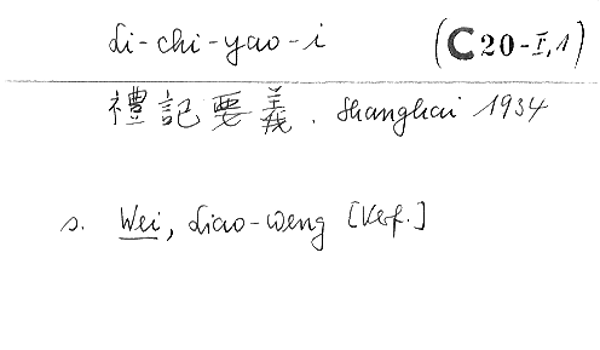 Li-chi-yao-i (C 20-I,1)
禮記要義. Shanghai 1934
s. Wei, Liao-weng [Verf.]